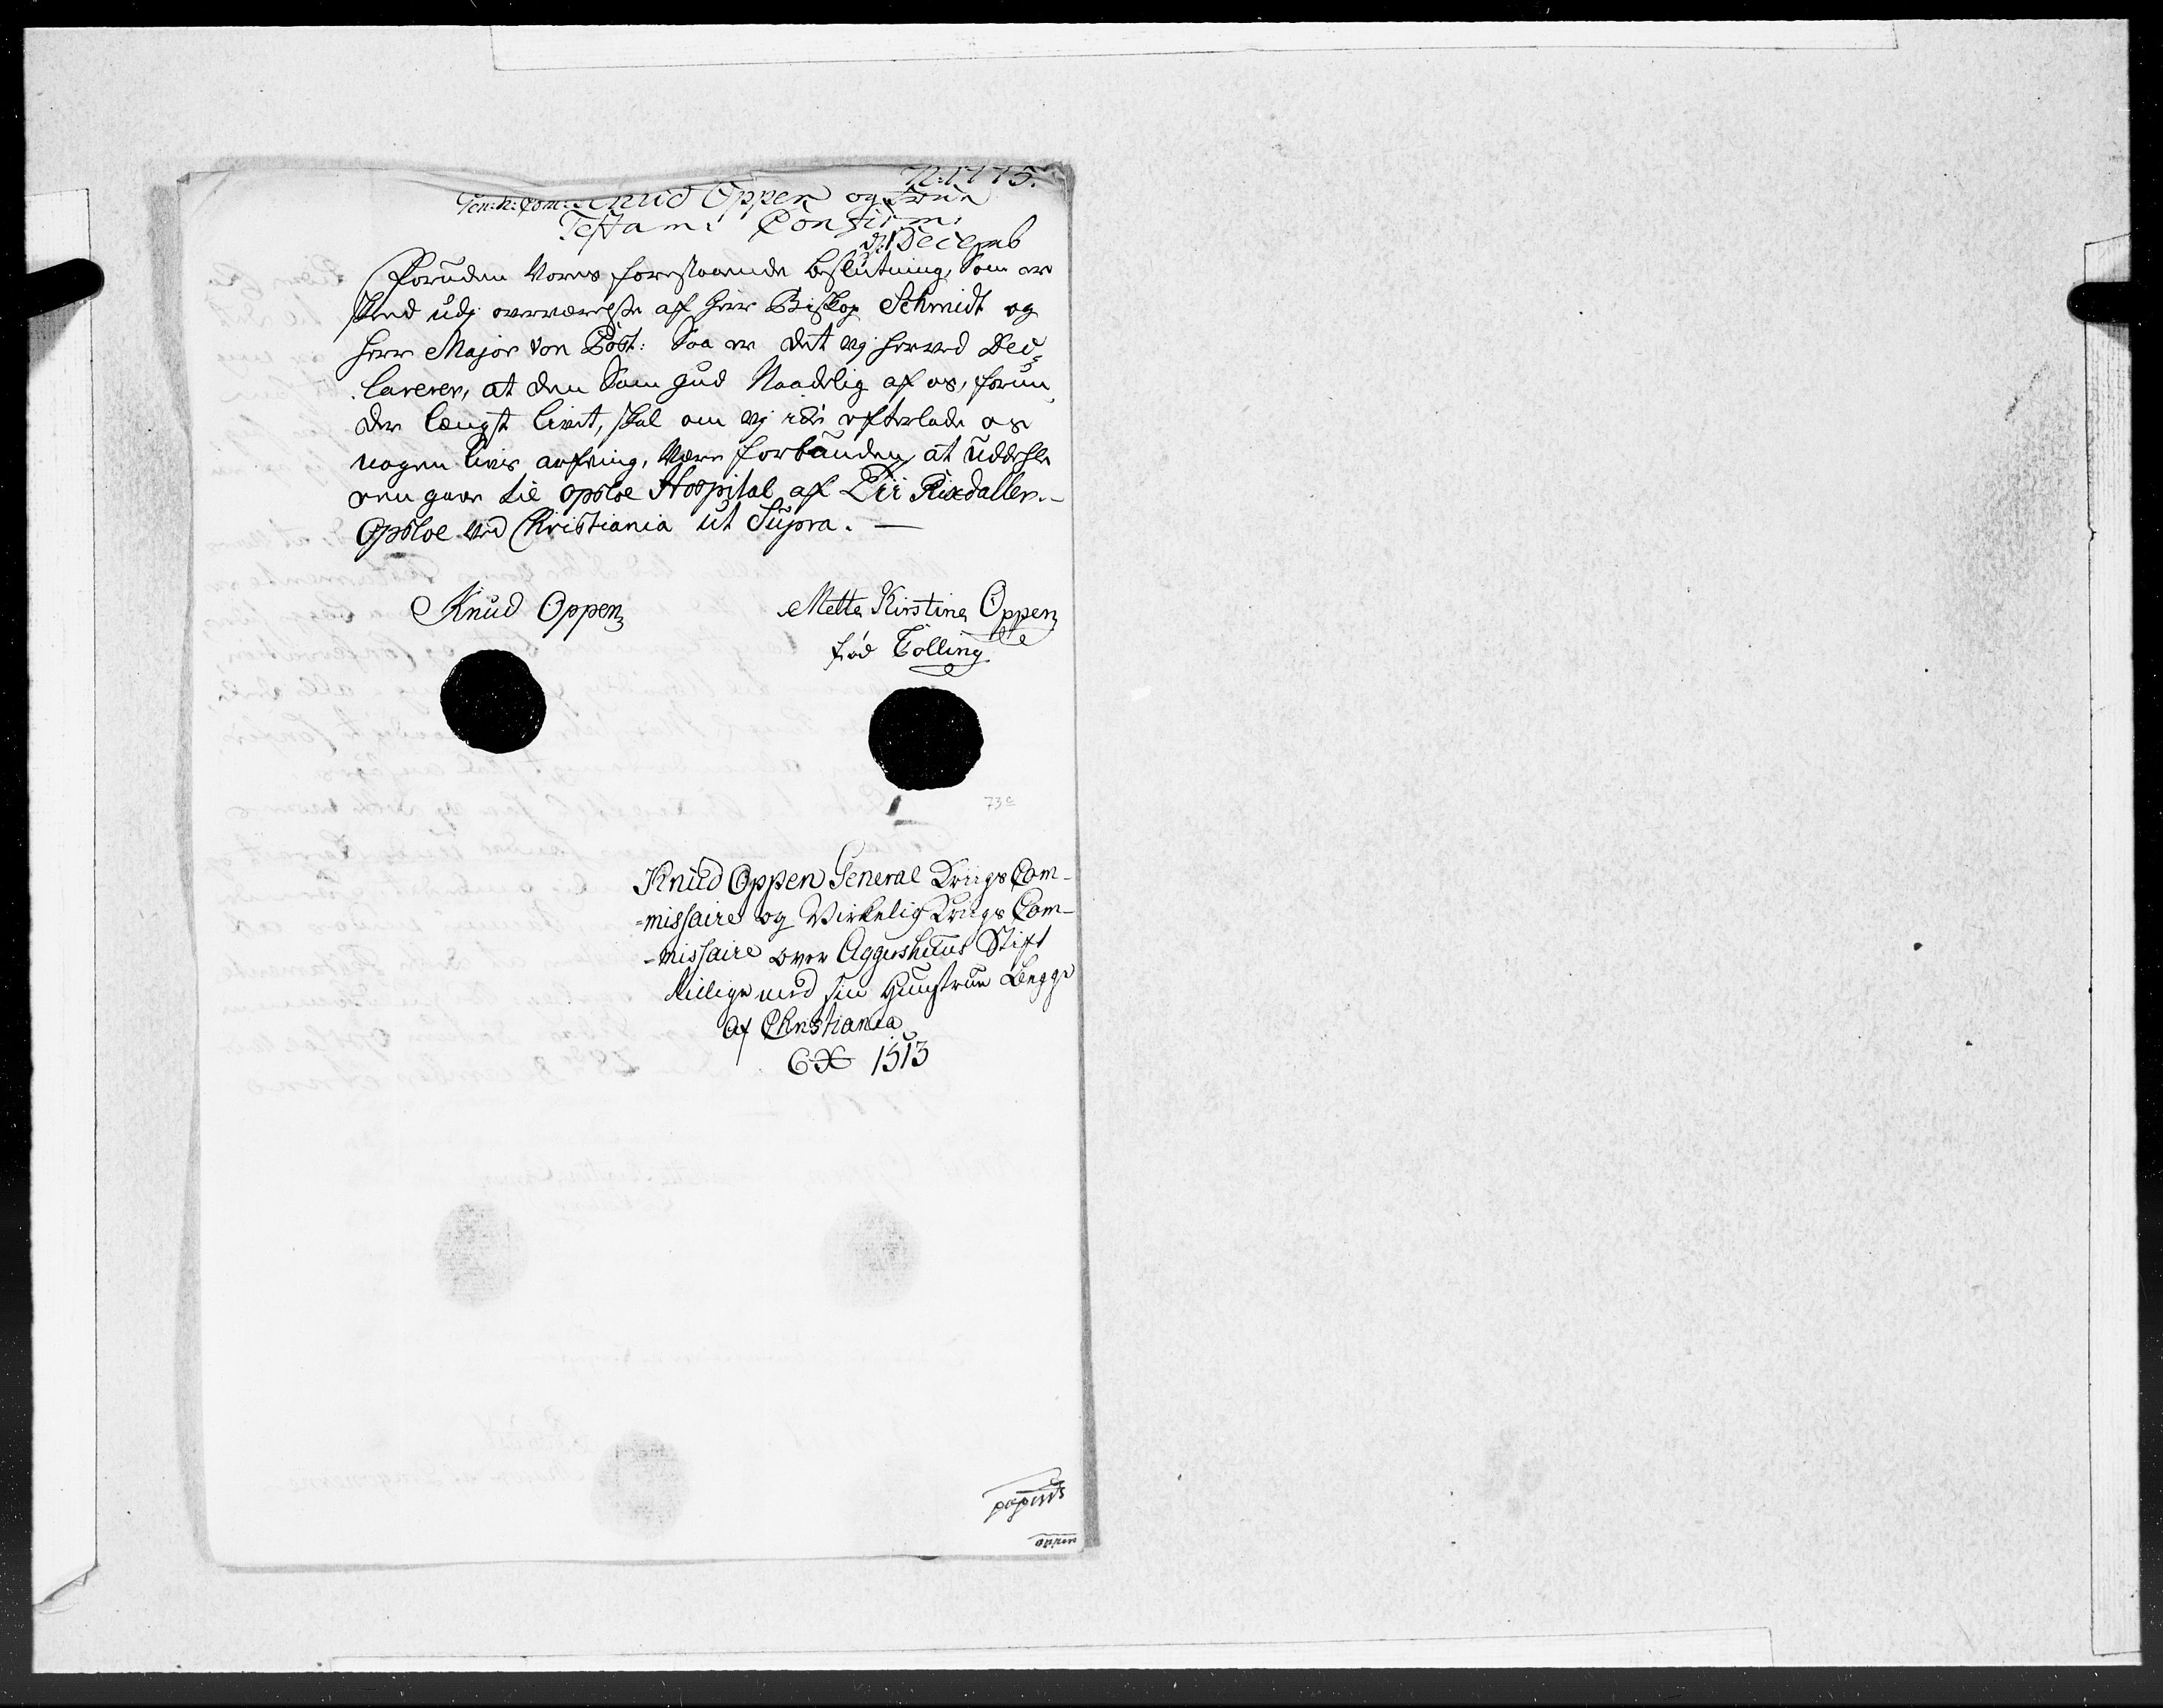 N: 1775.
Gen: K: Com: Knud Oppen og Frue
Testam: Confirm:
d: 1 Decemb
Foruden Vores forestaaende beslutning, som er
skeed udj overværelse aff Herr Biskop Schmidt og
Herr Major von Post: Saa er det vj herved Dec-
larerer, at den som Gud Naadelig af os, forun
der længst livet, skal om vj icke efterlade os
nogen livis arfving, være forbunden at uddeele
een gave til Opsloe Hospital af Rixdaller.
Opsloe ved Christiania ut Supra.
Knud Oppen
Mette Kirstine Oppen
fød Tölling
73c
Knud Oppen General Kriigs Com-
-missaire og Virkelig Kriigs Com-
-missaire over Aggershuus Stift
tillige med sin Hustrue begge
af Christiania
1513
papiirs